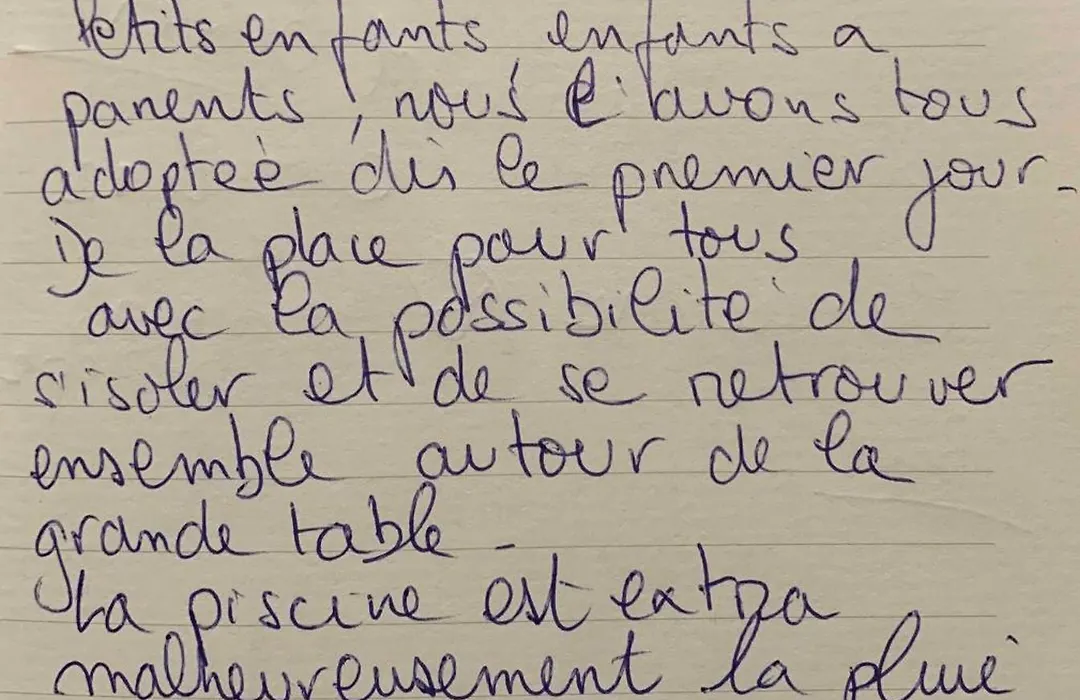 Petits enfants, enfants a
parents, nous l'avons tous
adoptée dès le premier jour.
De la place pour tous
avec la possibilité de
s'isoler et de se retrouver
ensemble autour de la
grande table -
La piscine est extra
malheureusement la pluie